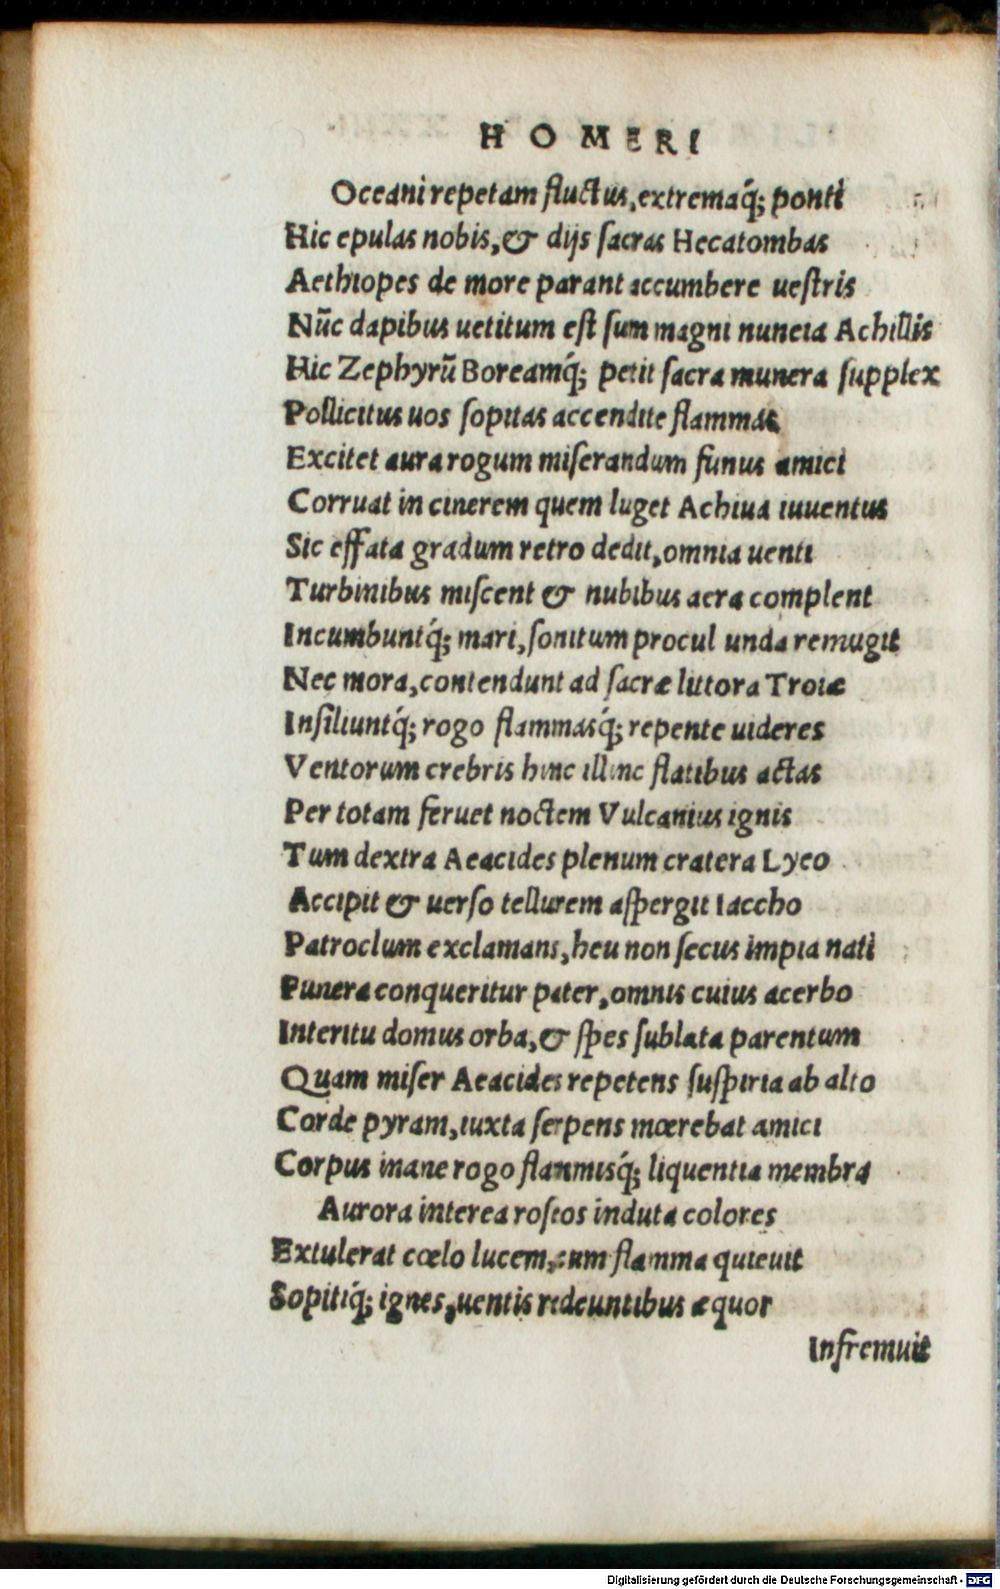 HOMERI
Oceani repetam fluctus, extremaq́; ponti
Hic epulas nobis, & dijs sacras Hecatombas
Aethiopes de more parant accumbere uestris
Nũc dapibus uetitum est sum magni nuncia Achillis
Hic Zephyrũ Boreamq́; petit sacra munera supplex
Pollicitus uos sopitas accendite flammas
Excitet aura rogum miserandum funus amici
Corruat in cinerem quem luget Achiua iuuentus
Sic effata gradum retro dedit, omnia uenti
Turbinibus miscent & nubibus aera complent
Incumbuntq́; mari, sonitum procul unda remugit
Nec mora, contendunt ad sacræ littora Troiæ
Insiliuntq́; rogo flammasq́; repente uideres
Ventorum crebris hinc illinc flatibus actas
Per totam feruet noctem Vulcanius ignis
Tum dextra Aeacides plenum cratera Lyeo
Accipit & uerso tellurem aspergit Iaccho
Patroclum exclamans, heu non secus impia nati
Funera conqueritur pater, omnis cuius acerbo
Interitu domus orba, & spes sublata parentum
Quam miser Aeacides repetens suspiria ab alto
Corde pyram, iuxta serpens mœrebat amici
Corpus inane rogo flammisq́; liquentia membra
Aurora interea roseos induta colores
Extulerat cœlo lucem, cum flamma quieuit
Sopitiq́; ignes, uentis redeuntibus æquor
Infremuit
Digitalisierung gefördert durch die Deutsche Forschungsgemeinschaft - DFG